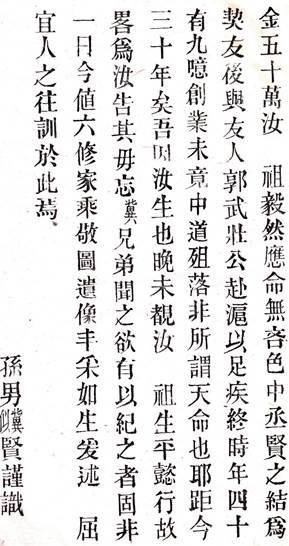 金五十萬汝　祖毅然應命無吝色中丞賢之結爲
契友後與友人郭武壯公赴滬以足疾終時年四十
有九噫創業未竟中道殂落非所謂天命也耶距今
三十年矣吾因汝生也晚未覩汝　祖生平懿行故
畧爲汝告其毋忘冀兄弟聞之欲有以紀之者固非
一日今値六修家乘敬圖遺像丰采如生爰述　屈
宜人之往訓於此焉
孫男冀似賢謹識